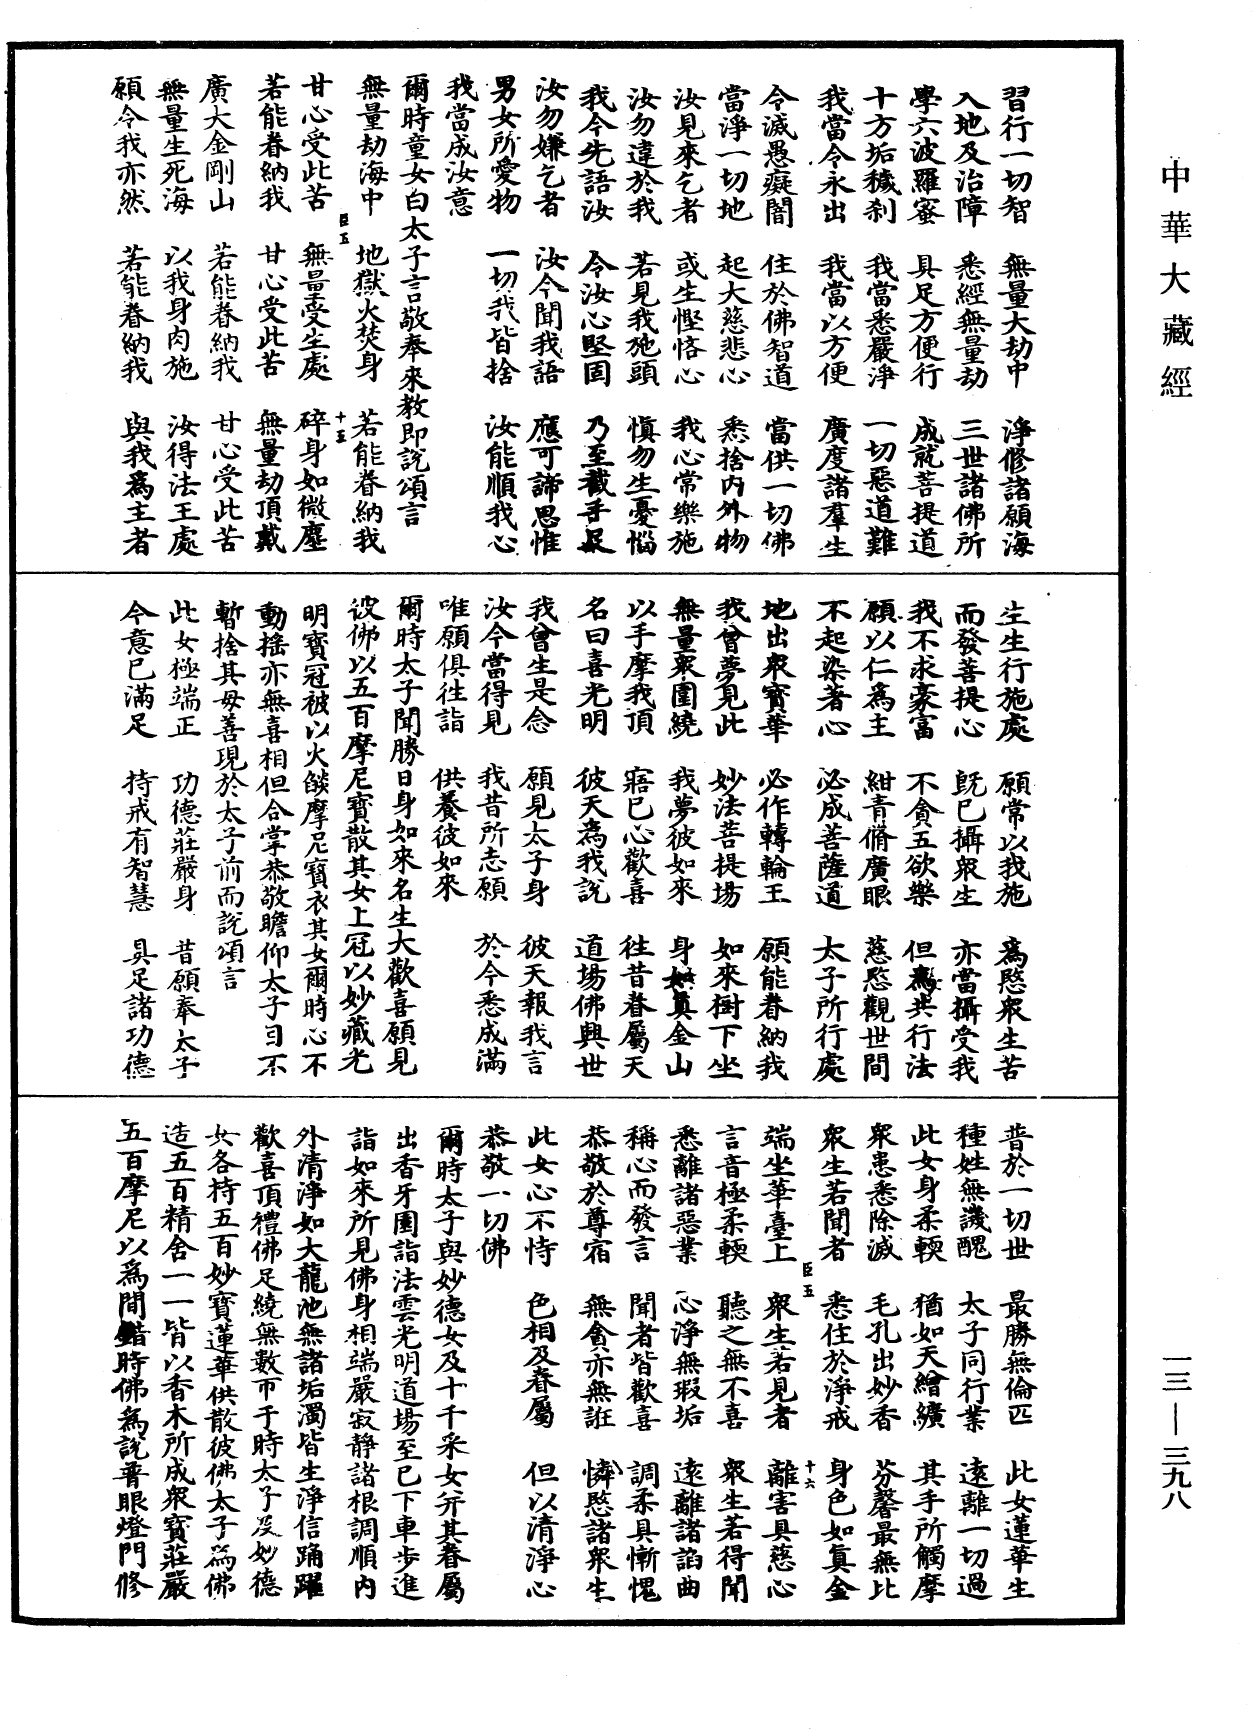 中華大藏經
習行一切智 無量大劫中 淨修諸願海
入地及治障 悉經無量劫 三世諸佛所
學六波羅蜜 具足方便行 成就菩提道
十方垢穢刹 我當悉嚴淨 一切惡道難
我當令永出 我當以方便 廣度諸羣生
令滅愚癡闇 住於佛智道 當供一切佛
當淨一切地 起大慈悲心 悉捨內外物
汝見來乞者 或生慳悋心 我心常樂施
汝勿違於我 若見我施頭 慎勿生憂惱
我今先語汝 令汝心堅固 乃至截手足
汝勿嫌乞者 汝今聞我語 應可諦思惟
男女所愛物 一切我皆捨 汝能順我心
我當成汝意
爾時童女白太子言敬奉來教即說頌言
無量劫海中 地獄火焚身 若能眷納我
甘心受此苦 無量受生處 碎身如微塵
若能眷納我 甘心受此苦 無量劫頂戴
廣大金剛山 若能眷納我 甘心受此苦
無量生死海 以我身肉施 汝得法王處
願令我亦然 若能眷納我 與我為主者
生生行施處 願常以我施 為愍衆生苦
而發菩提心 旣已攝衆生 亦當攝受我
我不求豪富 不貪五欲樂 但為共行法
願以仁為主 紺青脩廣眼 慈愍觀世間
不起染著心 必成菩薩道 太子所行處
地出衆寶華 必作轉輪王 願能眷納我
我曾夢見此 妙法菩提場 如來樹下坐
無量衆圍繞 我夢彼如來 身如真金山
以手摩我頂 寤已心歡喜 往昔眷屬天
名曰喜光明 彼天為我說 道場佛興世
我曾生是念 願見太子身 彼天報我言
汝今當得見 我昔所志願 於今悉成滿
唯願俱往詣 供養彼如來
爾時太子聞勝日身如來名生大歡喜願見
彼佛以五百摩尼寶散其女上冠以妙藏光
明寶冠被以火燄摩尼寶衣其女爾時心不
動搖亦無喜相但合掌恭敬瞻仰太子目不
暫捨其母善現於太子前而說頌言
此女極端正 功德莊嚴身 昔願奉太子
今意已滿足 持戒有智慧 具足諸功德
普於一切世 最勝無倫匹 此女蓮華生
種姓無譏醜 太子同行業 遠離一切過
此女身柔輭 猶如天繒纊 其手所觸摩
衆患悉除滅 毛孔出妙香 芬馨最無比
衆生若聞者 悉住於淨戒 身色如真金
端坐華臺上 衆生若見者 離害具慈心
言音極柔輭 聽之無不喜 衆生若得聞
悉離諸惡業 心淨無瑕垢 遠離諸諂曲
稱心而發言 聞者皆歡喜 調柔具慚愧
恭敬於尊宿 無貪亦無誑 憐愍諸衆生
此女心不恃 色相及眷屬 但以清淨心
恭敬一切佛
爾時太子與妙德女及十千采女并其眷屬
出香牙園詣法雲光明道場至已下車步進
詣如來所見佛身相端嚴寂靜諸根調順內
外清淨如大龍池無諸垢濁皆生淨信踊躍
歡喜頂禮佛足繞無數帀于時太子及妙德
女各持五百妙寶蓮華供散彼佛太子為佛
造五百精舍一一皆以香木所成衆寶莊嚴
五百摩尼以為間錯時佛為說普眼燈門修
臣五
十五
臣五
十六
一三—三九八